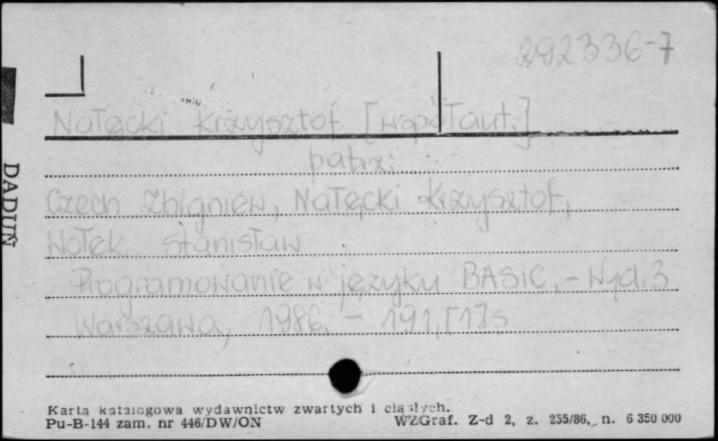 292336-7
Nałęcki Krzysztof [współaut.]
patrz:
Czech Zbigniew, Nałęcki Krzysztof,
Wołek Stanisław
Programowanie w języku BASIC. - Wyd. 3
Warszawa, 1986. - 191, [1] s
DADUN
Karta katalogowa wydawnictw zwartych i ciągłych.
Pu-B-144 zam. nr 446/DW/ON WZGraf. Z-d 2, z. 255/86, n. 6 350 000